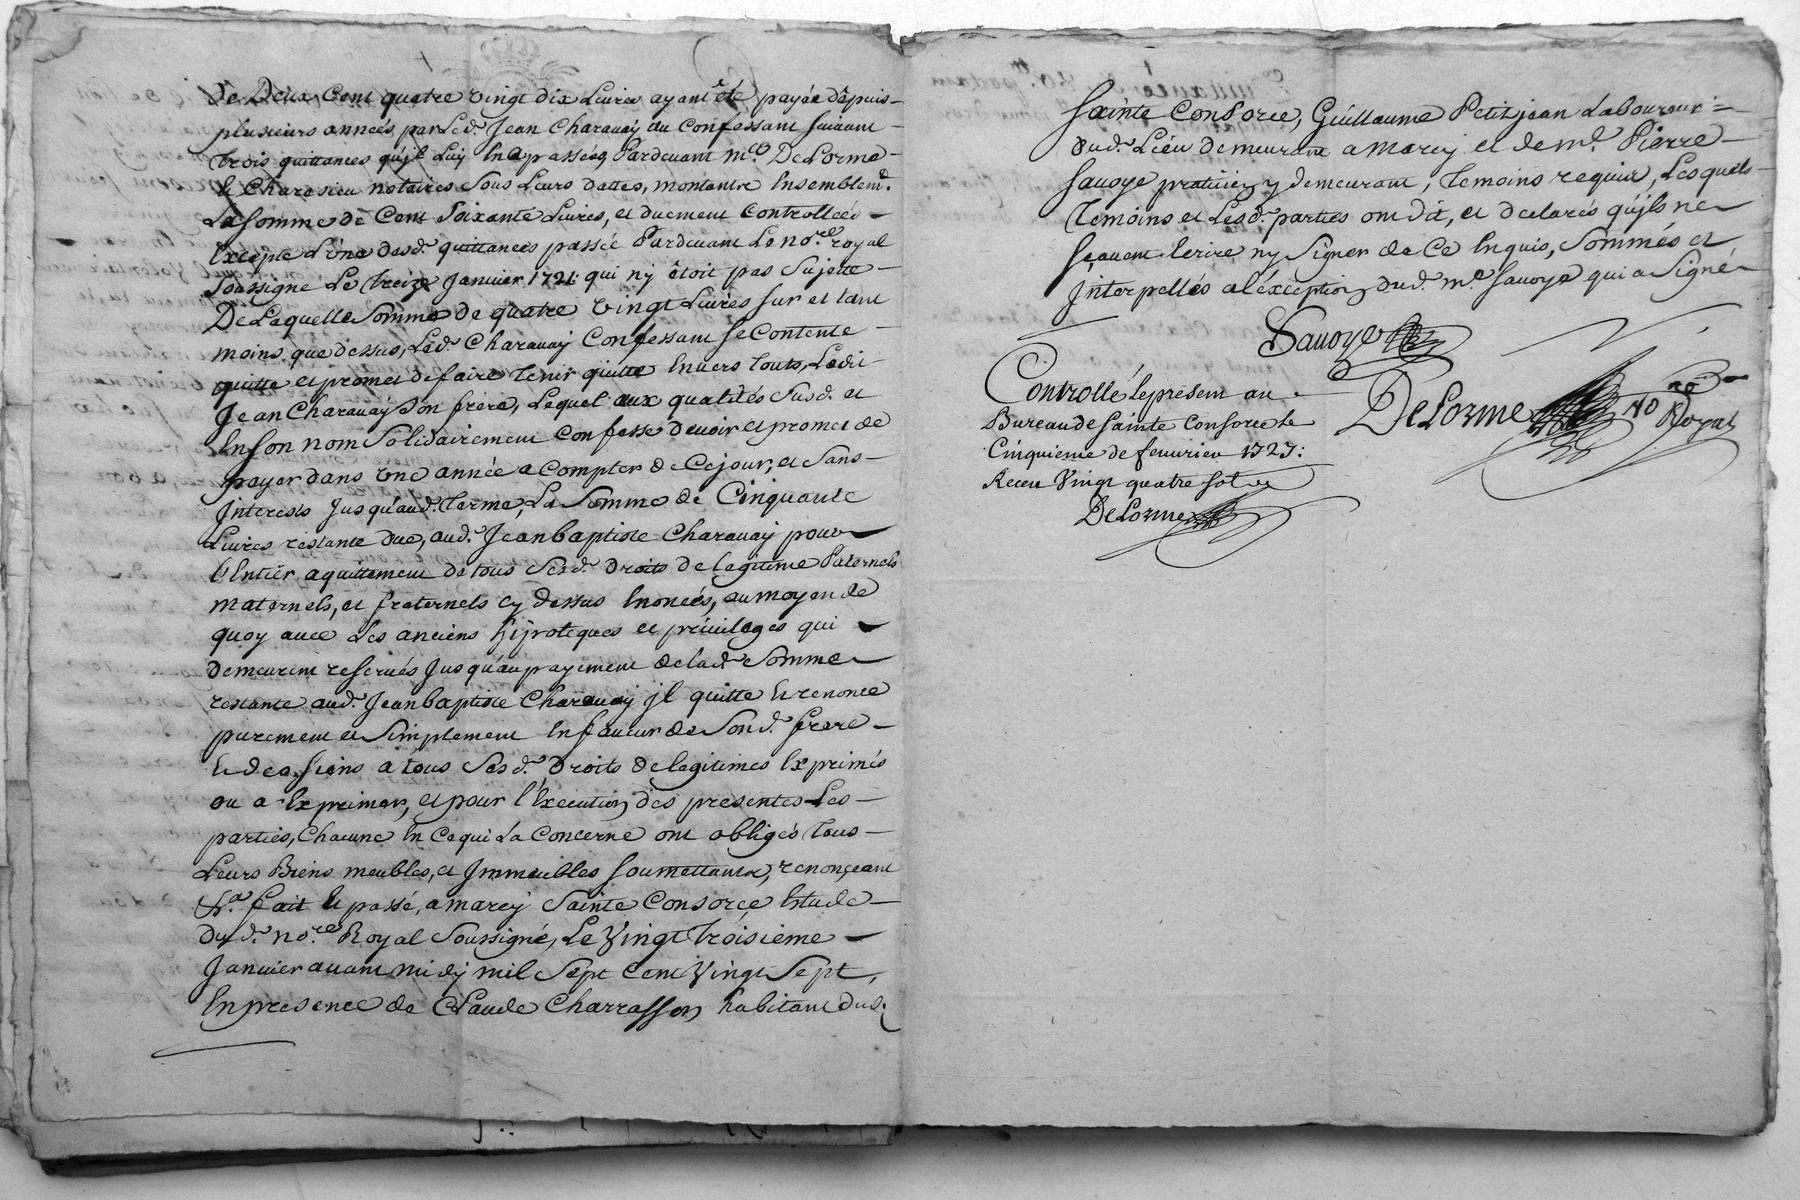 de Deux Cent quatre vingt dix Livres ayant êté payée dêpuis
plusieurs anneés par Led. Jean Charauaÿ au Confessant suiuant
trois quittances qu'jl Luy En a passéés Pardeuant mes. DeLorme
Et Charesieu notaires sous Leurs dattes, montantes Ensemblemt.
La somme de Cent soixante Livres, et duement Controlleés
Excepte L'une desd. quittances passéé Pardeuant Le nore. royal
soussigné Le treize Januier 1721: qui n'y êtoit pas sujette
De Laquelle somme de quatre vingt Livres sur et tant
moins que dessus, Led. Charauaÿ Confessant se Contente
quitte et promet de faire tenir quitte Enuers touts, Ledit
Jean Charauaÿ son frere, Lequel aux qualités susd. et
En son nom solidairement confesse deuoir et promet de
payer dans une année a compter de Cejour, et sans
Interests jusqu'aud. terme, La somme de Cinquante
Livres restante due, aud. Jean baptiste Charauaÿ pour
l'Entiër aquittement de tous sesd. droits de legitime Paternels
maternels, et fraternels cy dessus Enoncés, au moyen de
quoy auec Les anciens hÿpoteques et priuileges qui
demeurent reserués jusqu'au payement de lad. somme
restante aud. Jean baptiste Charauaÿ jl quitte Et renonce
purement et simplement En faueur de sond. frere
Et des siens a tous sesd. Droits de legitimes Exprimés
ou a Exprimer, et pour l'Execution des presentes Les
parties, Chacune En Ce qui La Concerne ont obligés tous
Leurs Biens meubles, et Jmmeubles soumettants, renonçeant
&a. fait Et passé, a marcÿ Sainte Consorçe Estude
dud. nore. Royal soussigné, Le Vingt troisième
Januier auant midÿ mil sept cent Vingt sept,
En presence de Claude Charrasson habitant dud.
Sainte Consorce, Guillaume Petitjean Laboureur
dud. Liëu demeurant a marcÿ et de me. Pierre
Sauoye pratiçien y demeurant, temoins requis, Lesquels
temoins et Lesd. parties ont dit, et declarés qu'jls ne
sçauent Ecrire ny signer de Ce Enquis, sommés et
Jnterpellés a l'exception dud. me. Sauoye qui a signé
Sauoye
Controllé le present au
Bureau de sainte Consorce le
Cinquieme de feuurier 1727:
Receu Vingt quatre sols
DeLorme
DeLorme No re Royal